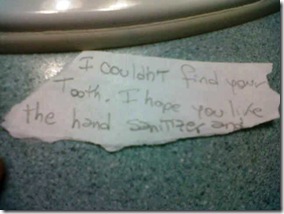 I couldn't find your
Tooth. I hope you like
the hand sanitizer and